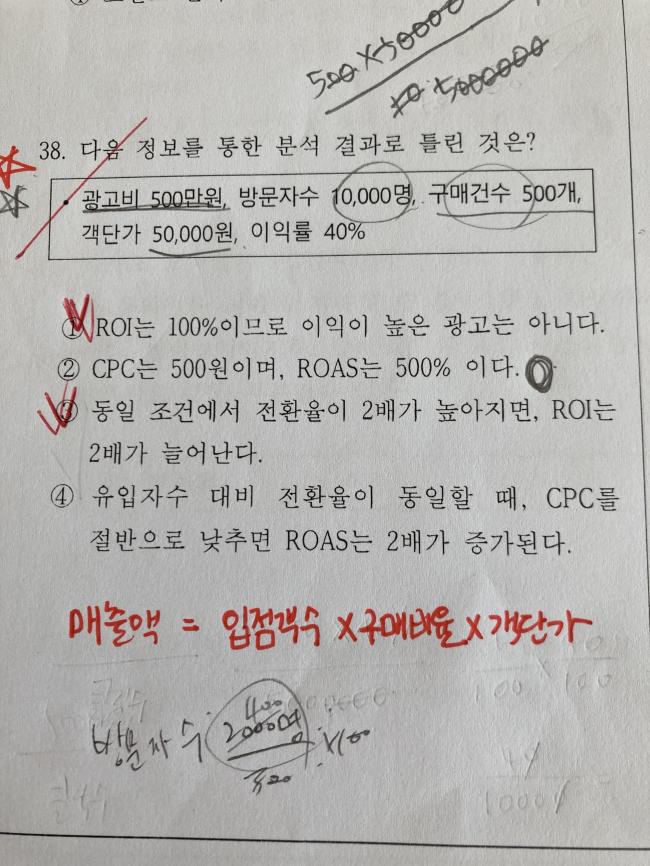 500 × 50000
38. 다음 정보를 통한 분석 결과로 틀린 것은?
• 광고비 500만원, 방문자수 10,000명, 구매건수 500개,
객단가 50,000원, 이익률 40%
① ROI는 100%이므로 이익이 높은 광고는 아니다.
② CPC는 500원이며, ROAS는 500% 이다.
③ 동일 조건에서 전환율이 2배가 높아지면, ROI는
2배가 늘어난다.
④ 유입자수 대비 전환율이 동일할 때, CPC를
절반으로 낮추면 ROAS는 2배가 증가된다.
매출액 = 입점객수 × 구매비율 × 객단가
클릭수
100 100
방문자수
클릭수